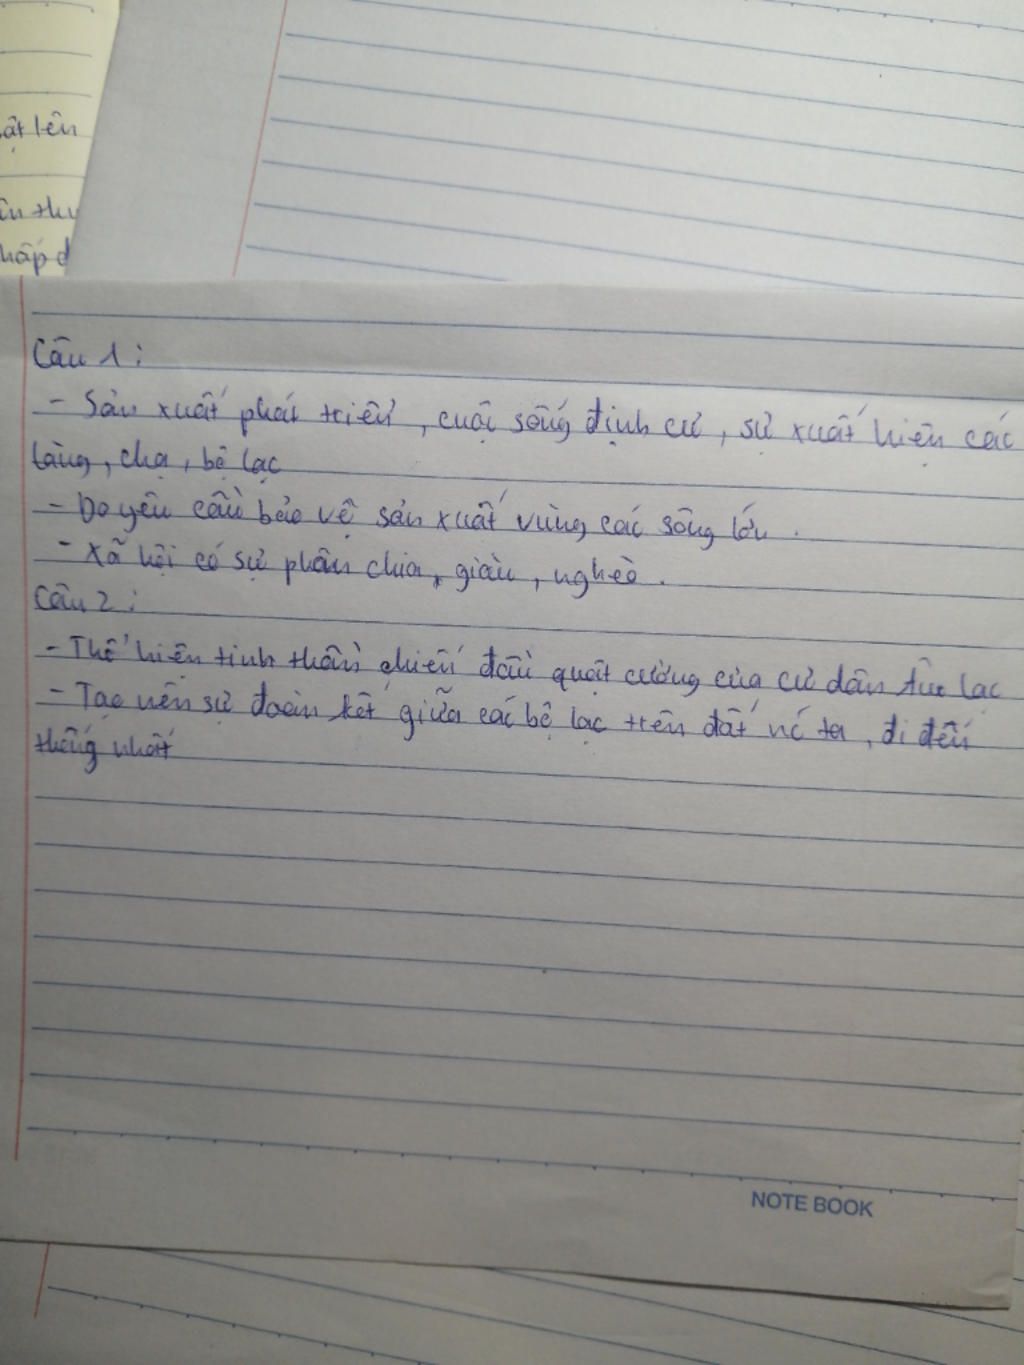 ật lên
ân thu
hấp đ
Câu 1:
- Sản xuất phát triển, cuộc sống định cư, sự xuất hiện các
làng, chạ, bộ lạc
- Do yêu cầu bảo vệ sản xuất vùng các sông lớn.
- Xã hội có sự phân chia, giàu, nghèo.
Câu 2:
- Thể hiện tinh thần chiến đấu quật cường của cư dân Âu Lạc
- Tạo nên sự đoàn kết giữa các bộ lạc trên đất nc ta, đi đến
thống nhất
NOTE BOOK